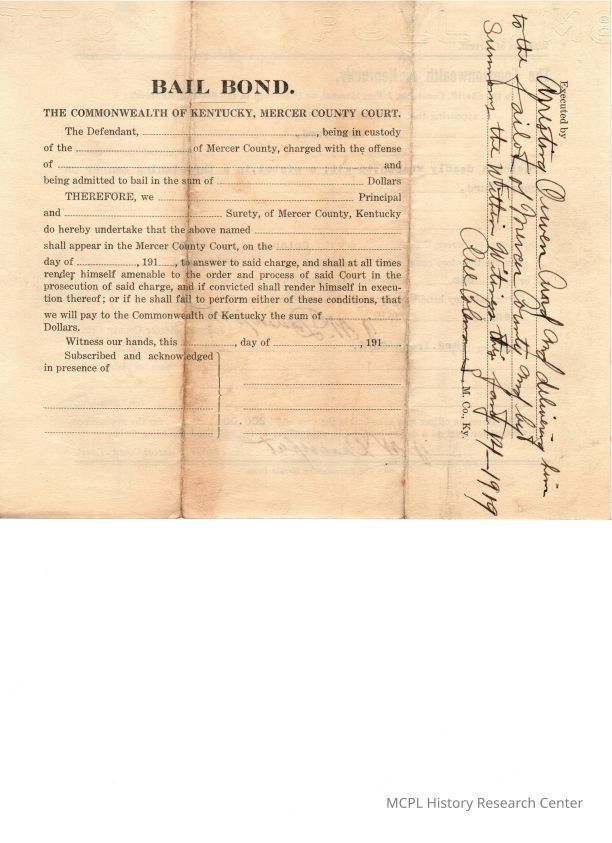 BAIL BOND.
THE COMMONWEALTH OF KENTUCKY, MERCER COUNTY COURT.
The Defendant, , being in custody
of the of Mercer County, charged with the offense
of and
being admitted to bail in the sum of Dollars
THEREFORE, we Principal
and Surety, of Mercer County, Kentucky
do hereby undertake that the above named
shall appear in the Mercer County Court, on the
day of , 191 , to answer to said charge, and shall at all times
render himself amenable to the order and process of said Court in the
prosecution of said charge, and if convicted shall render himself in execu-
tion thereof; or if he shall fail to perform either of these conditions, that
we will pay to the Commonwealth of Kentucky the sum of
Dollars.
Witness our hands, this , day of , 191
Subscribed and acknowledged
in presence of
Executed by
Aresting Owen Ward and delivering him
to the Jailor of Mercer County and by
Summons the Within Witnings this Jany 14-1919
M. Co., Ky.
MCPL History Research Center